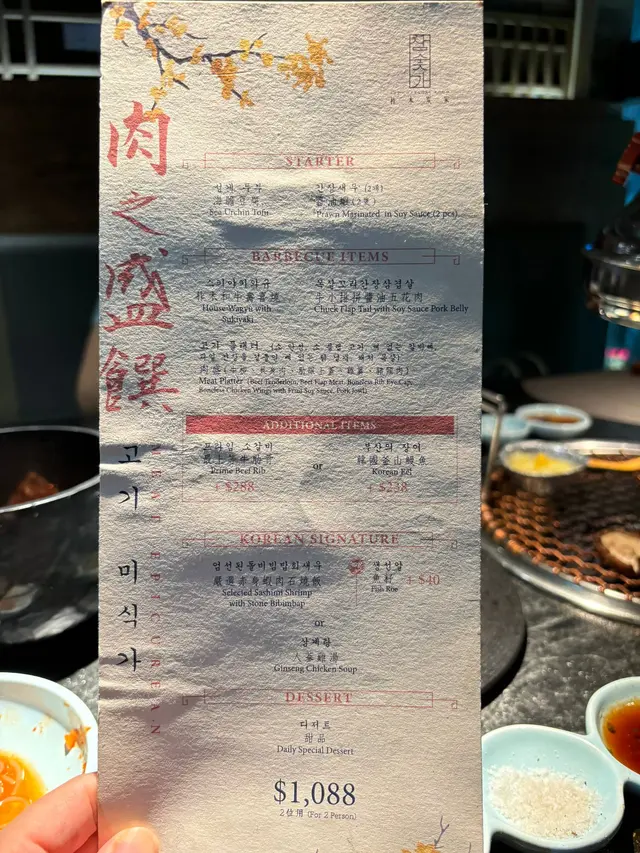 肉之盛饌
고기 미식가
MEAT EPICUREAN
STARTER
성게 두부
海膽豆腐
Sea Urchin Tofu
간장새우 (2개)
醬油蝦 (2隻)
Prawn Marinated in Soy Sauce (2 pcs)
BARBECUE ITEMS
스키야키와규
House Wagyu with
Sukiyaki
牛小排拼醬油五花肉
Chuck Flap Tail with Soy Sauce Pork Belly
고기 플래터
Meat Platter (Beef Tenderloin, Beef Flap Meat, Boneless Rib Eye Cap,
Boneless Chicken Wings with Fruit Soy Sauce, Pork Jowl)
ADDITIONAL ITEMS
프라임 소갈비
Prime Beef Rib
+ $288
or
부산의 장어
韓國釜山鰻魚
Korean Eel
+ $238
KOREAN SIGNATURE
嚴選赤身蝦肉石燒飯
Selected Sashimi Shrimp
with Stone Bibimbap
생선알
魚籽
Fish Roe
+ $40
or
삼계탕
人蔘雞湯
Ginseng Chicken Soup
DESSERT
디저트
甜品
Daily Special Dessert
$1,088
2位用 (For 2 Person)